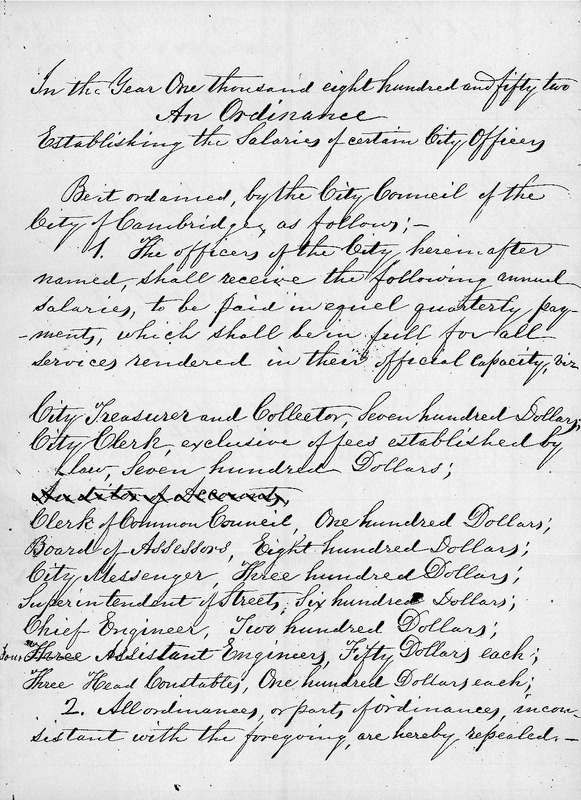 In the Year One thousand eight hundred and fifty two
An Ordinance
Establishing the Salaries of certain City Officers
Be it ordained, by the City Council of the
City of Cambridge, as follows;—
1. The officers of the City hereinafter
named, shall receive the following annual
salaries, to be paid in equel quarterly pay-
-ments, which shall be in full for all
services rendered in their official capacity, viz
City Treasurer and Collector, Seven hundred Dollars;
City Clerk, exclusive of fees established by
law, Seven hundred Dollars;
Auditor of Accounts,
Clerk of Common Council, One hundred Dollars;
Board of Assessors, Eight hundred Dollars;
City Messenger, Three hundred Dollars;
Superintendent of Streets, Six hundred Dollars;
Chief Engineer, Two hundred Dollars;
Four Three Assistant Engineers, Fifty Dollars each;
Three Head Constables, One hundred Dollars each;
2. All ordinances, or parts of ordinances, incon-
sistant with the foregoing, are hereby repealed.—